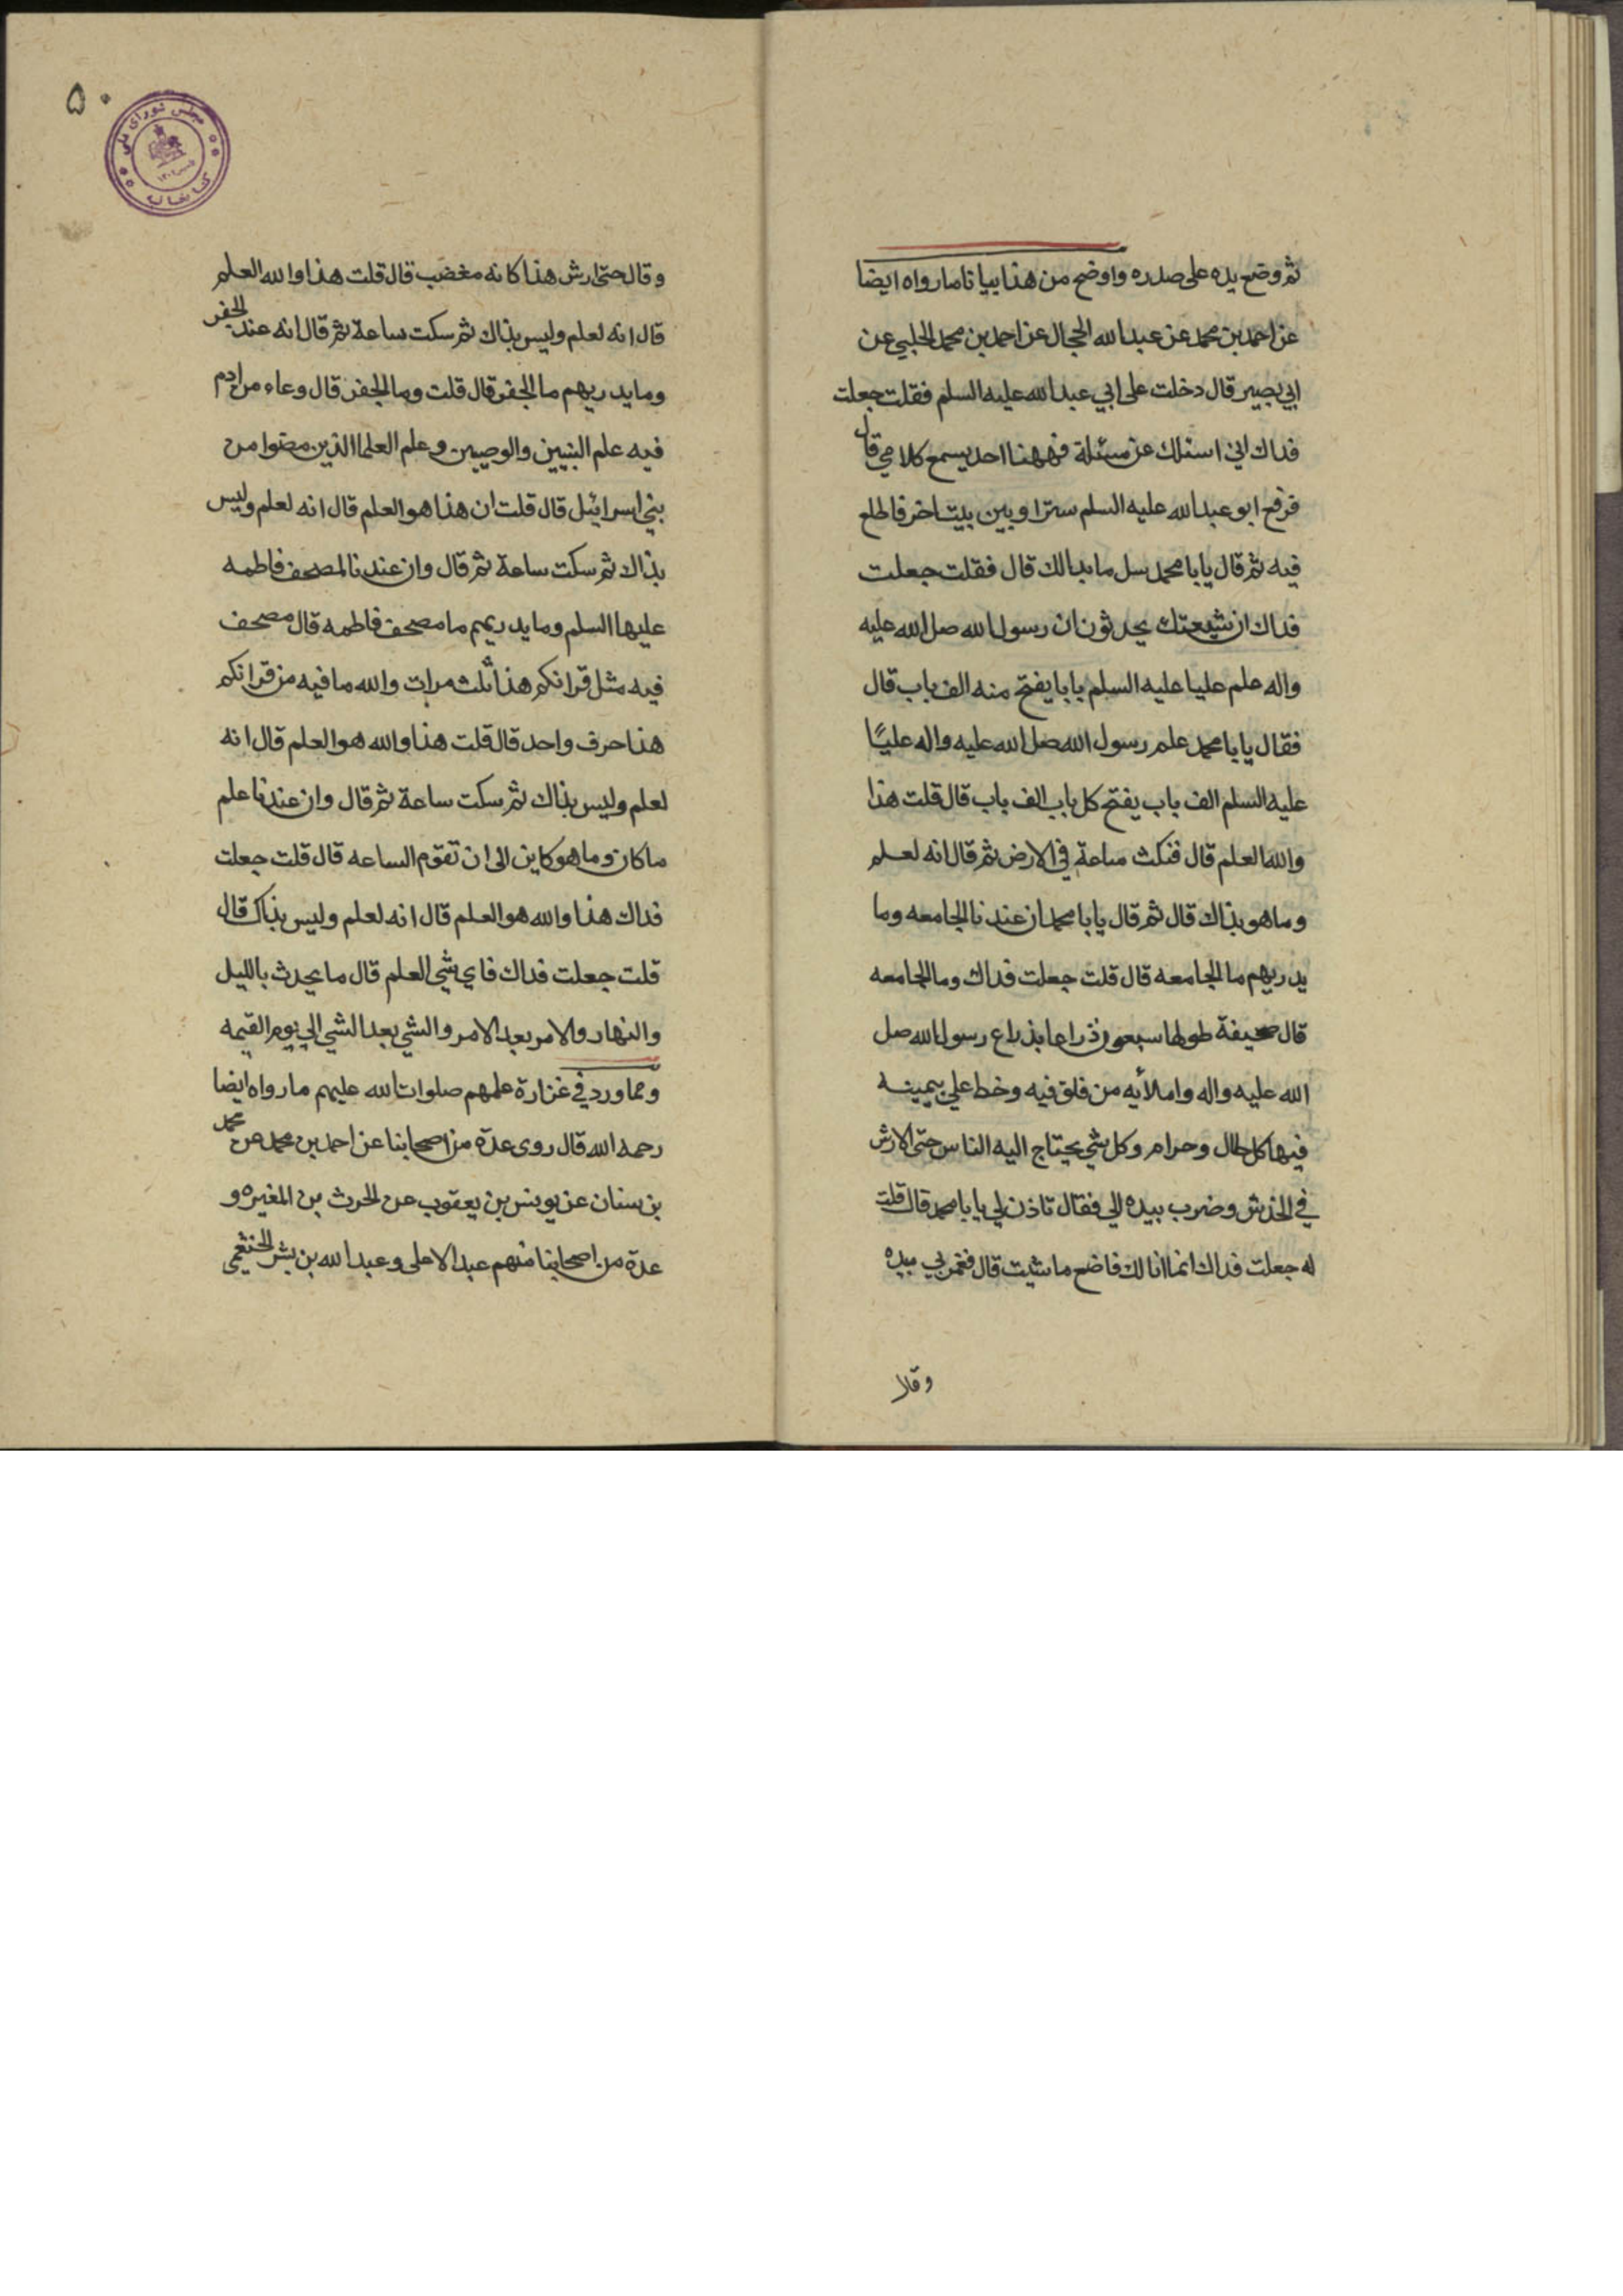 ثم وضع يده على صدره واوضح من هذا بيانا ما رواه ايضا
عن احمد بن محمد عن عبد الله الحجال عن احمد بن محمد الحلبي عن
ابي بصير قال دخلت على ابي عبد الله عليه السلم فقلت جعلت
فداك اني اسئلك عن مسئلة فههنا احد يسمع كلامي قال
فرفع ابو عبد الله عليه السلم سترا وبين بيت اخر فاطلع
فيه ثم قال يا با محمد سل ما بدالك قال فقلت جعلت
فداك ان شيعتك يحدثون ان رسول الله صل الله عليه
واله علم عليا عليه السلم بابا يفتح منه الف باب قال
فقال يا با محمد علم رسول الله صل الله عليه واله عليًا
عليه السلم الف باب يفتح كل باب الف باب قال قلت هذا
والله العلم قال فنكث ساعة في الارض ثم قال انه لعلم
وما هو بذاك قال ثم قال يا با محمد ان عندنا الجامعه وما
يدريهم ما الجامعه قال قلت جعلت فداك وما الجامعه
قال صحيفة طولها سبعون ذراعا بذراع رسول الله صل
الله عليه واله واملائه من فلق فيه وخط علي بيمينه
فيها كل حلال وحرام وكل شي يحتاج اليه الناس حتى الارش
في الخدش وضرب بيده الي فقال تاذن لي يا با محمد قال قلت
له جعلت فداك انما انا لك فاضع ما شيت قال فغمزني بيده
وقال
۵۰
مجلس شورای ملی
کتابخانه
وقال حتى ارش هذا كانه مغضب قال قلت هذا والله العلم
قال انه لعلم وليس بذاك ثم سكت ساعة ثم قال انه عند الجفر
وما يدريهم ما الجفر قال قلت وما الجفر قال وعاء من ادم
فيه علم النبيين والوصيين وعلم العلما الذين مضوا من
بني اسرائيل قال قلت ان هذا هو العلم قال انه لعلم وليس
بذاك ثم سكت ساعة ثم قال وان عندنا لمصحف فاطمه
عليها السلم وما يدريهم ما مصحف فاطمه قال مصحف
فيه مثل قرانكم هذا ثلث مرات والله ما فيه من قرانكم
هذا حرف واحد قال قلت هذا والله هو العلم قال انه
لعلم وليس بذاك ثم سكت ساعة ثم قال وان عندنا علم
ما كان وما هو كاين الى ان تقوم الساعه قال قلت جعلت
فداك هذا والله هو العلم قال انه لعلم وليس بذاك قال
قلت جعلت فداك فاي شي العلم قال ما يحدث بالليل
والنهار والامر بعد الامر والشي بعد الشي الي يوم القيمه
ومما ورد في غزارة علمهم صلوات الله عليهم ما رواه ايضا
رحمه الله قال روى عدة من اصحابنا عن احمد بن محمد عن محمد
بن سنان عن يونس بن يعقوب عن الحرث بن المغيره و
عدة من اصحابنا منهم عبد الاعلى وعبد الله بن بشر الخثعمي